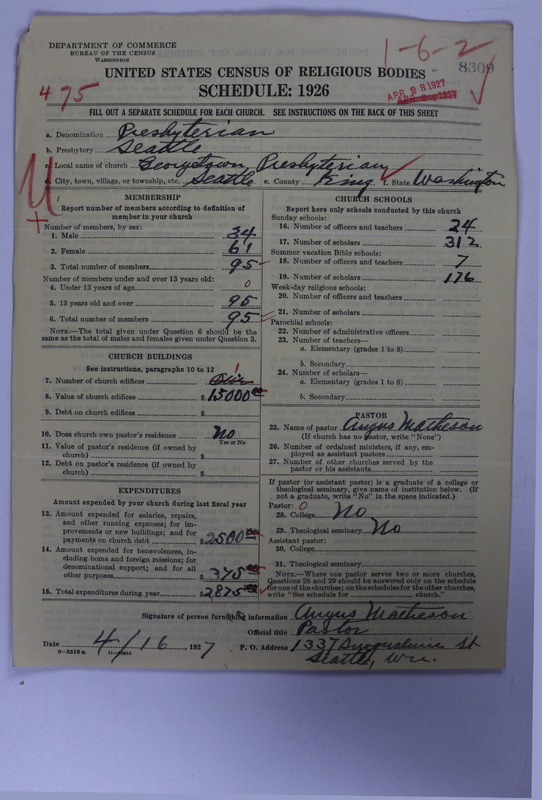 DEPARTMENT OF COMMERCE
BUREAU OF THE CENSUS
WASHINGTON
1-6-2
8309
UNITED STATES CENSUS OF RELIGIOUS BODIES
SCHEDULE: 1926
475
APR 23 1927
FILL OUT A SEPARATE SCHEDULE FOR EACH CHURCH. SEE INSTRUCTIONS ON THE BACK OF THIS SHEET
a. Denomination Presbyterian
b. Presbytery Seattle
Local name of church Georgetown, Presbyterian
City, town, village, or township, etc. Seattle e. County King f. State Washington
MEMBERSHIP
Report number of members according to definition of
member in your church
Number of members, by sex:
1. Male 34
2. Female 61
3. Total number of members 95
Number of members under and over 13 years old:
4. Under 13 years of age 0
5. 13 years old and over 95
6. Total number of members 95
NOTE.—The total given under Question 6 should be the
same as the total of males and females given under Question 3.
CHURCH BUILDINGS
See instructions, paragraphs 10 to 12
7. Number of church edifices 1
8. Value of church edifices $15000.00
9. Debt on church edifices $
10. Does church own pastor's residence No
Yes or No
11. Value of pastor's residence (if owned by
church) $
12. Debt on pastor's residence (if owned by
church) $
EXPENDITURES
Amount expended by your church during last fiscal year
13. Amount expended for salaries, repairs,
and other running expenses; for im-
provements or new buildings; and for
payments on church debt $2500.00
14. Amount expended for benevolences, in-
cluding home and foreign missions; for
denominational support; and for all
other purposes $375.00
15. Total expenditures during year $2875.00
CHURCH SCHOOLS
Report here only schools conducted by this church
Sunday schools:
16. Number of officers and teachers 24
17. Number of scholars 312
Summer vacation Bible schools:
18. Number of officers and teachers 7
19. Number of scholars 176
Week-day religious schools:
20. Number of officers and teachers
21. Number of scholars
Parochial schools:
22. Number of administrative officers
23. Number of teachers—
a. Elementary (grades 1 to 8)
b. Secondary
24. Number of scholars—
a. Elementary (grades 1 to 8)
b. Secondary
PASTOR
25. Name of pastor Angus Matheson
(If church has no pastor, write "None")
26. Number of ordained ministers, if any, em-
ployed as assistant pastors
27. Number of other churches served by the
pastor or his assistants
If pastor (or assistant pastor) is a graduate of a college or
theological seminary, give name of institution below. (If
not a graduate, write "No" in the space indicated.)
Pastor: 0
28. College No
29. Theological seminary No
Assistant pastor:
30. College
31. Theological seminary
NOTE.—Where one pastor serves two or more churches,
Questions 28 and 29 should be answered only on the schedule
for one of the churches; on the schedules for the other churches,
write "See schedule for church."
Signature of person furnishing information Angus Matheson
Official title Pastor
Date 4/16, 1927 P. O. Address 1337 St
Seattle, Wn.